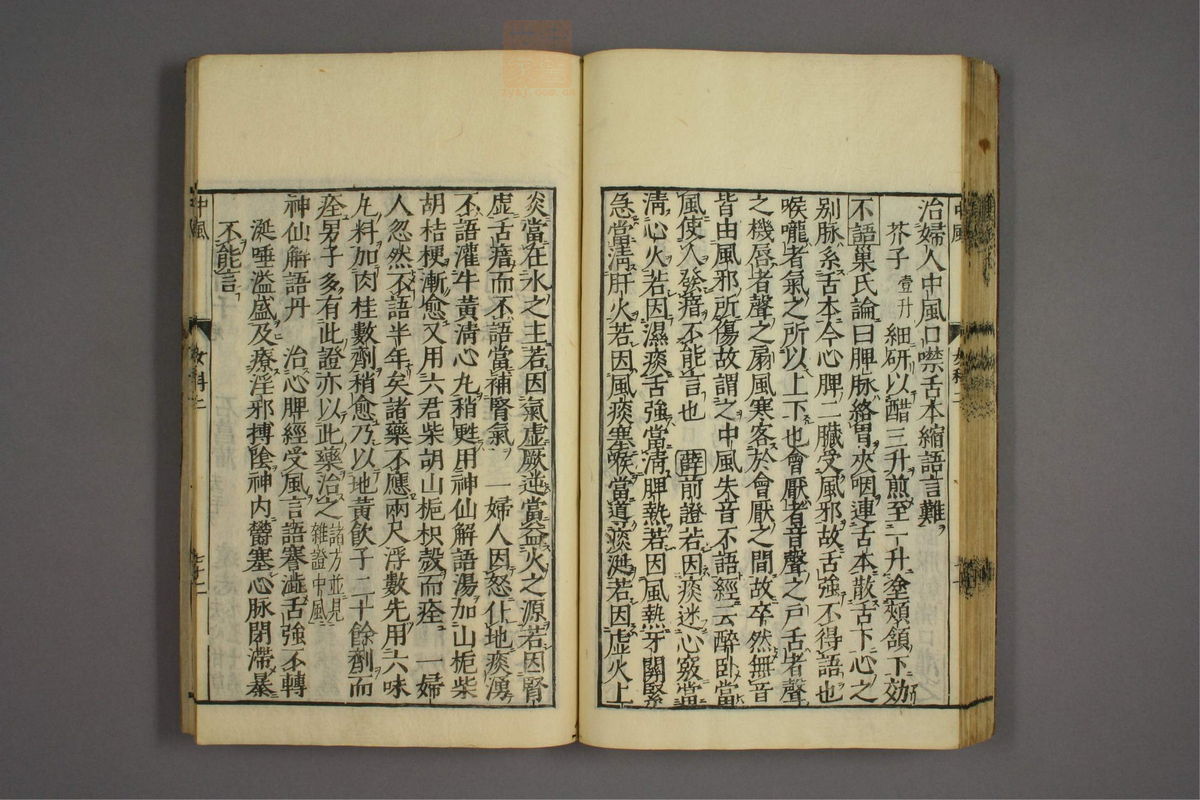 治婦人中風口噤舌本縮語言難
芥子壹升細研以醋三升煎至一升塗頰頷下効
不語巢氏論曰脾脉絡胃夾咽連舌本散舌下心之
別脉系舌本今心脾二臟受風邪故舌強不得語也
喉嚨者氣之所以上下也會厭者音聲之戶舌者聲
之機唇者聲之扇風寒客於會厭之間故卒然無音
皆由風邪所傷故謂之中風失音不語經云醉卧當
風使人發瘖不能言也　薛前證若因痰迷心竅當
淸心火若因濕痰舌強當淸脾熱若因風熱牙關緊
急當淸肝火若因風痰塞喉當導痰涎若因虚火上
炎當在水之主若因氣虚厥逆當益火之源若因腎
虚舌瘖而不語當補腎氣　一婦人因怒仆地痰湧
不語灌牛黃淸心丸稍甦用神仙解語湯加山梔柴
胡桔梗漸愈又用六君柴胡山梔枳殼而痊　一婦
人忽然不語半年矣諸藥不應兩尺浮數先用六味
丸料加肉桂數劑稍愈乃以地黃飮子二十餘劑而
痊男子多有此證亦以此藥治之諸方並見雜證中風
神仙解語丹　治心脾經受風言語蹇澁舌強不轉
涎唾溢盛及療淫邪搏陰神内鬱塞心脉閉滯暴
不能言
中風
女科二